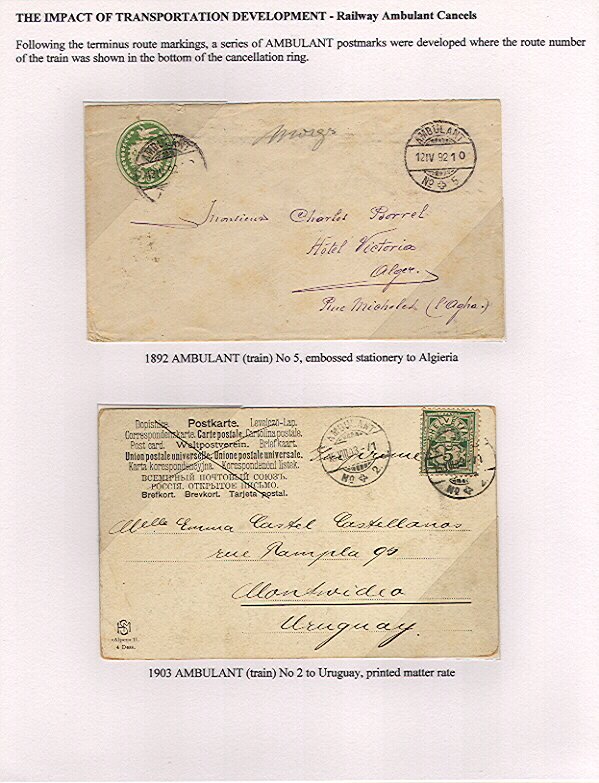 THE IMPACT OF TRANSPORTATION DEVELOPMENT - Railway Ambulant Cancels
Following the terminus route markings, a series of AMBULANT postmarks were developed where the route number
of the train was shown in the bottom of the cancellation ring.
AMBULANT
AMBULANT
12 IV 92 10
No 5
Monsieur Charles Borrel
Hôtel Victoria
Alger.
Rue Michelet (l'Agha.)
1892 AMBULANT (train) No 5, embossed stationery to Algieria
Dopisnice Postkarte. Levelező-Lap.
Correspondenzkarte. Carte postale. Cartolina postale.
Post card. Weltpostverein. Briefkaart.
Union postale universelle. Unione postale universale.
Karta korespondencyjna. Korespondenční lístek.
ВСЕМІРНЫЙ ПОЧТОВЫЙ СОЮЗЪ.
РОССІЯ. ОТКРЫТОЕ ПИСЬМО.
Brefkort. Brevkort. Tarjeta postal.
AMBULANT
No 2
5
No 2
Melle Emma Castel Castellanos
rue Rampla 90
Montevideo
Uruguay.
1903 AMBULANT (train) No 2 to Uruguay, printed matter rate